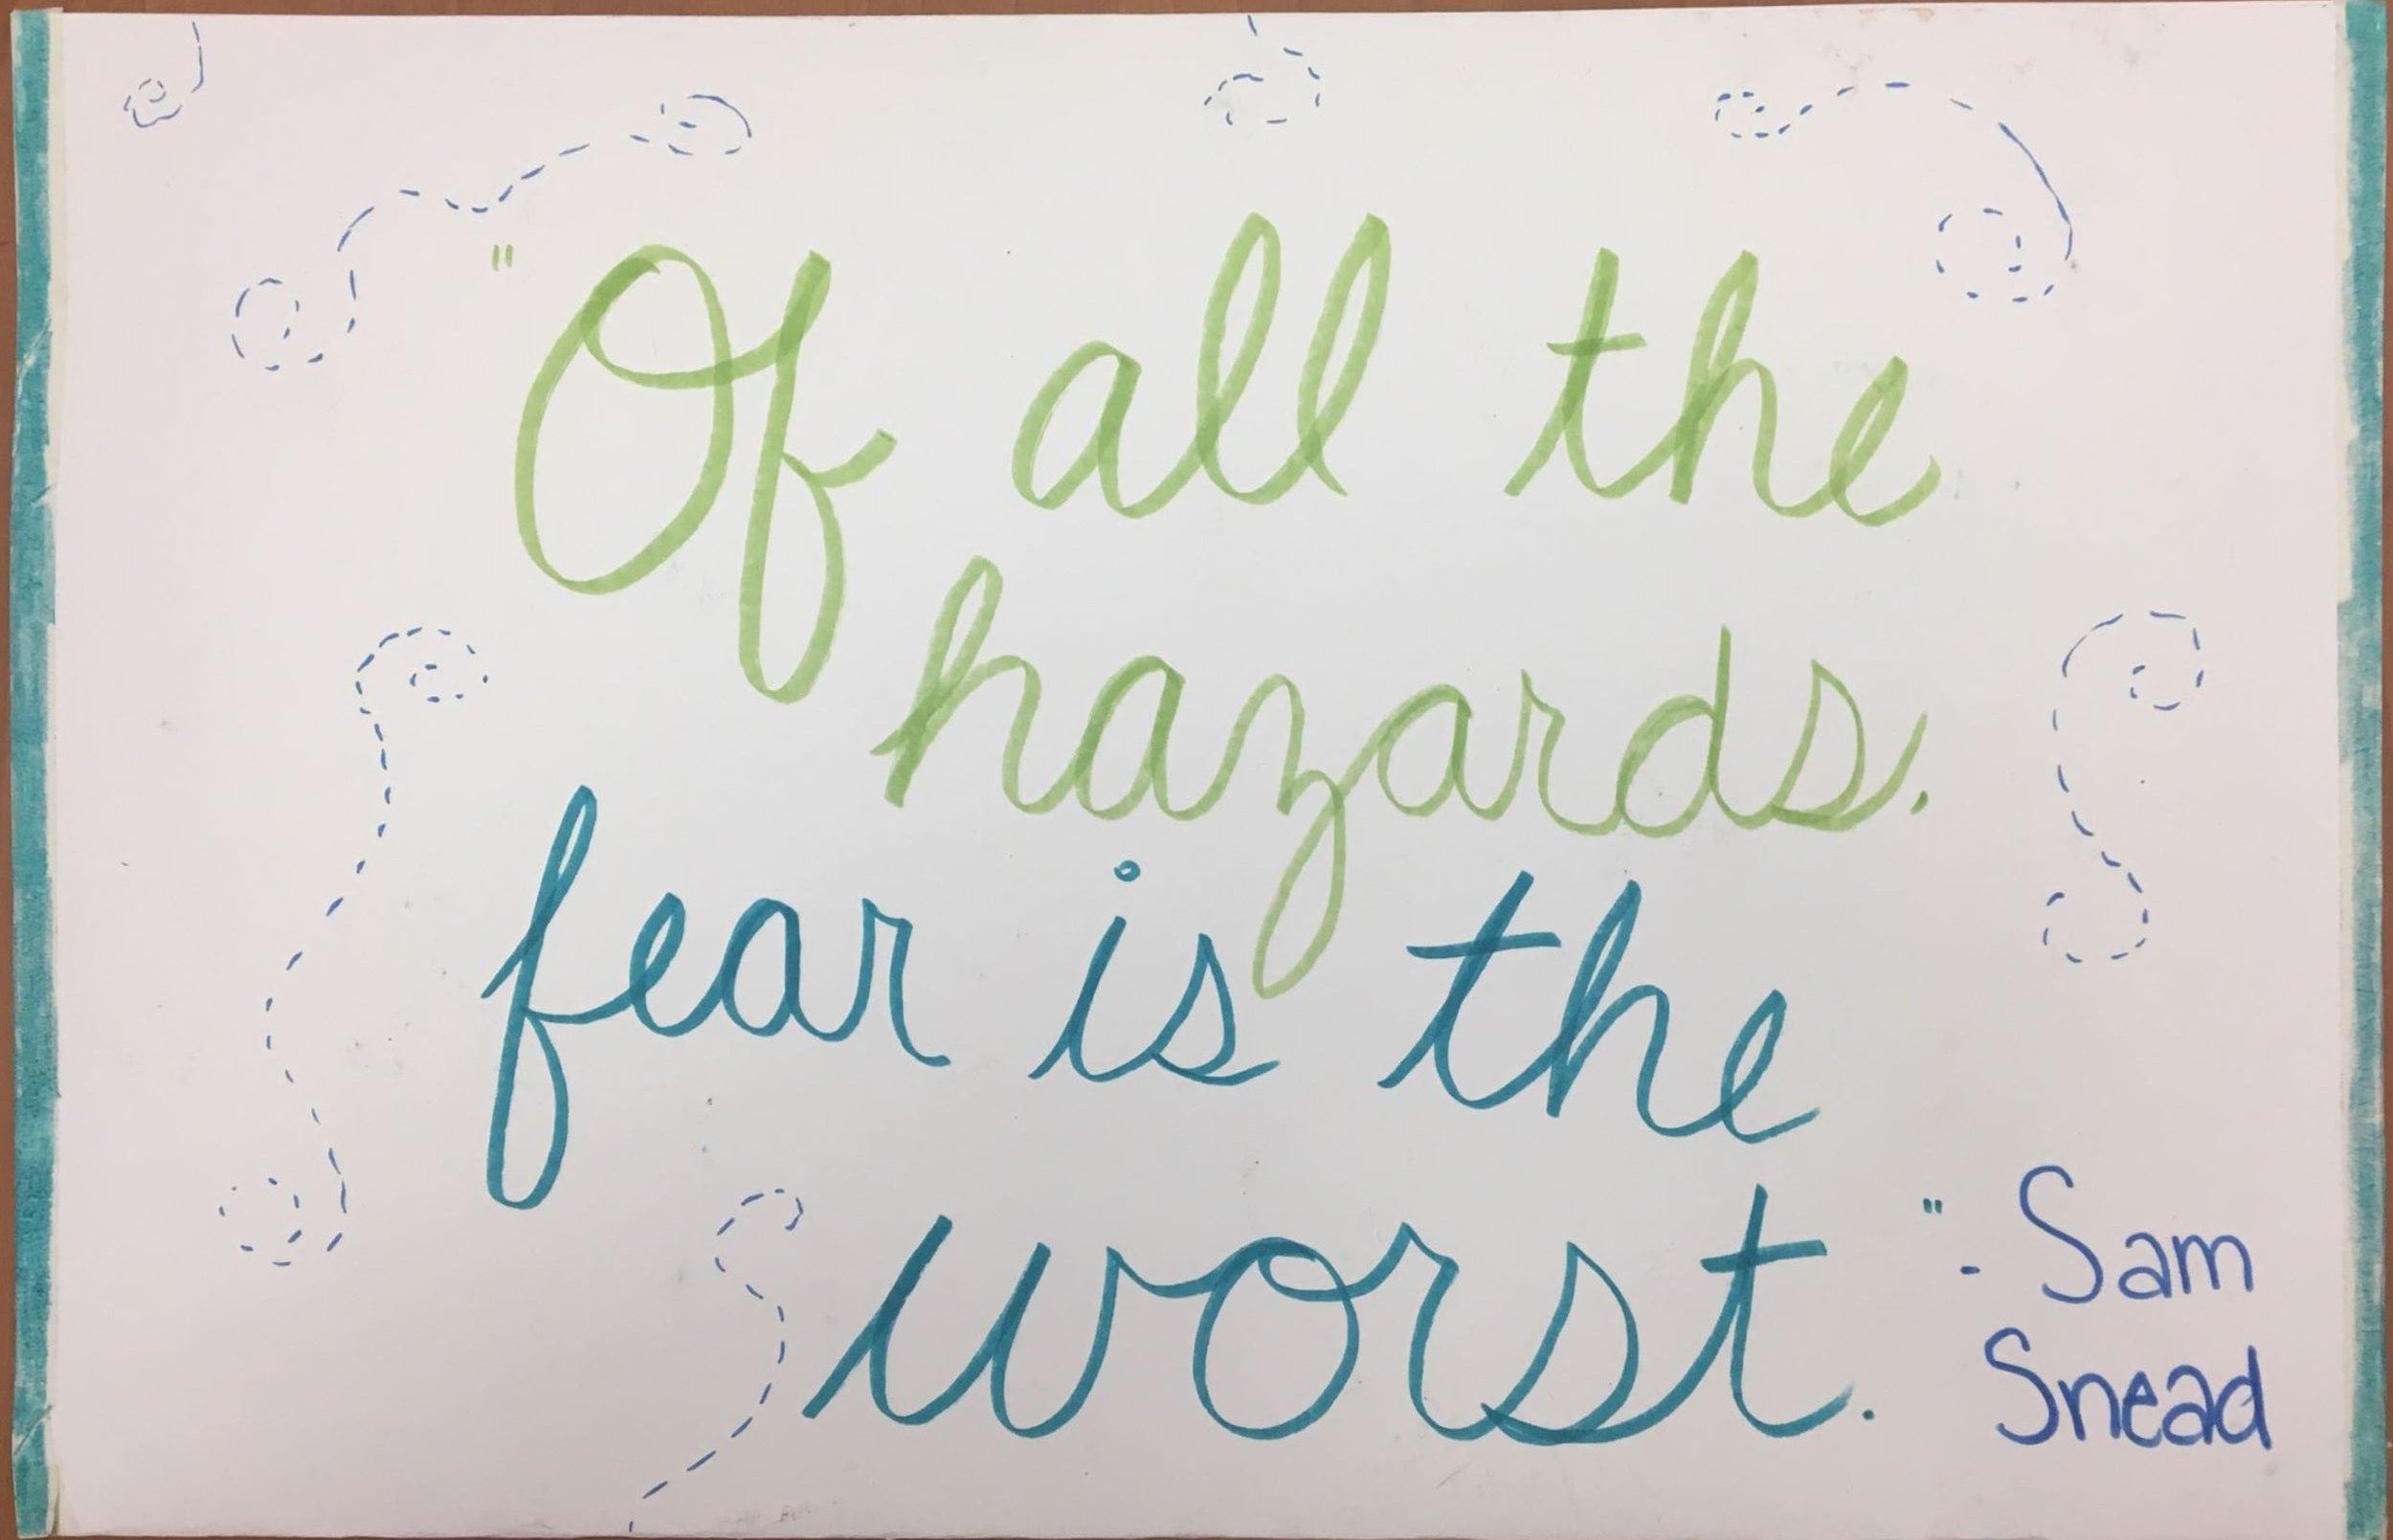 "Of all the
hazards,
fear is the
worst."
- Sam
Snead